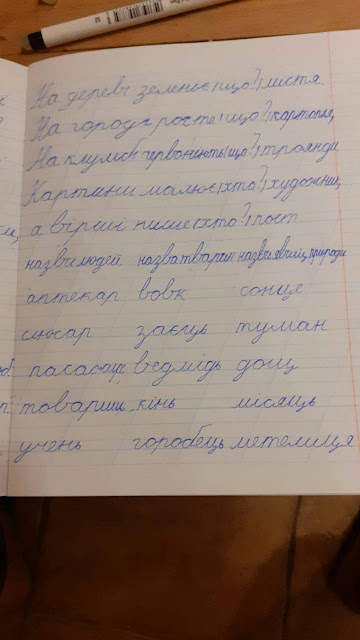 На дереві зеленіє (що?) листя.
На городі росте (що?) картопля,
На клумбі червоніють (що?) троянди
Картини малює (хто?) художник,
а вірші пише (хто?) поет
назви людей назва тварин назви явищ природи
аптекар вовк сонце
слюсар заєць туман
пасажир ведмідь дощ
товариш кінь місяць
учень горобець метелиця